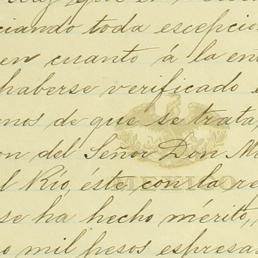 ciando toda escepcio
en cuanto á la en
haberse verificado e
mos de que se trata,
on del Señor Don M
l Rio, éste con la re
se ha hecho mérito,
o mil pesos espresa